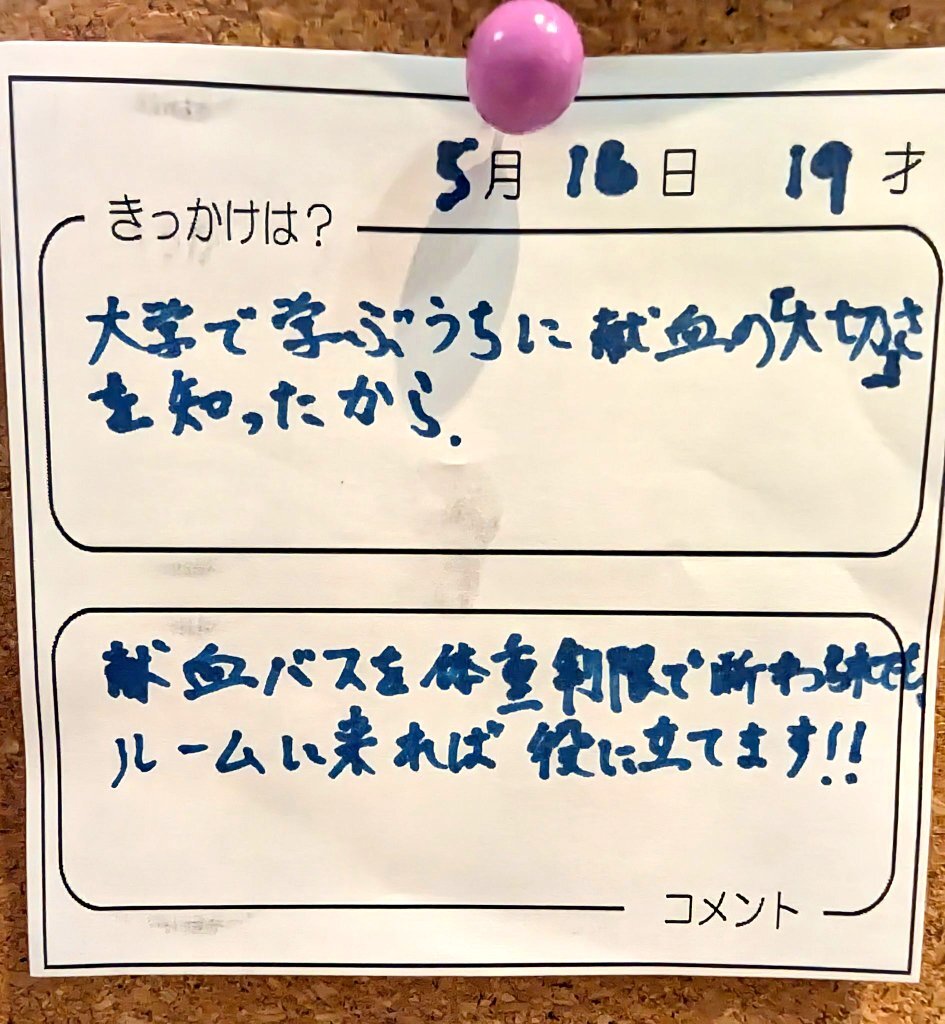 5月 16日 19才
きっかけは？
大学で学ぶうちに献血の「大切さ」
を知ったから.
献血バスを体重制限で断わられても,
ルームに来れば役に立てます!!
コメント